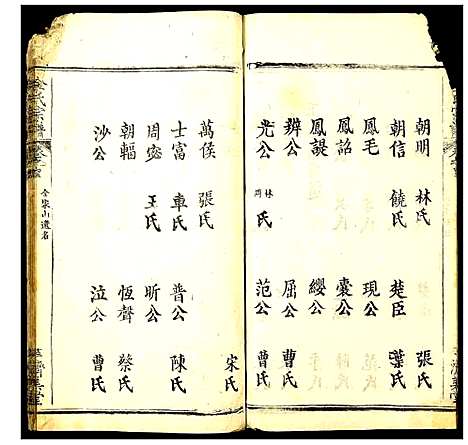 朝明 林氏 張氏
朝信 饒氏 楚臣 葉氏
鳳毛 現公
鳳詔 囊公
鳳諟 纓公
辨公 屈公 曹氏
光公 林 氏 范公 曹氏
宋氏
萬侯 張氏
士富 車氏 普公 陳氏
周宓 王氏 昕公
朝輻 恆聲 蔡氏
沙公 泣公 曹氏
氏宗譜